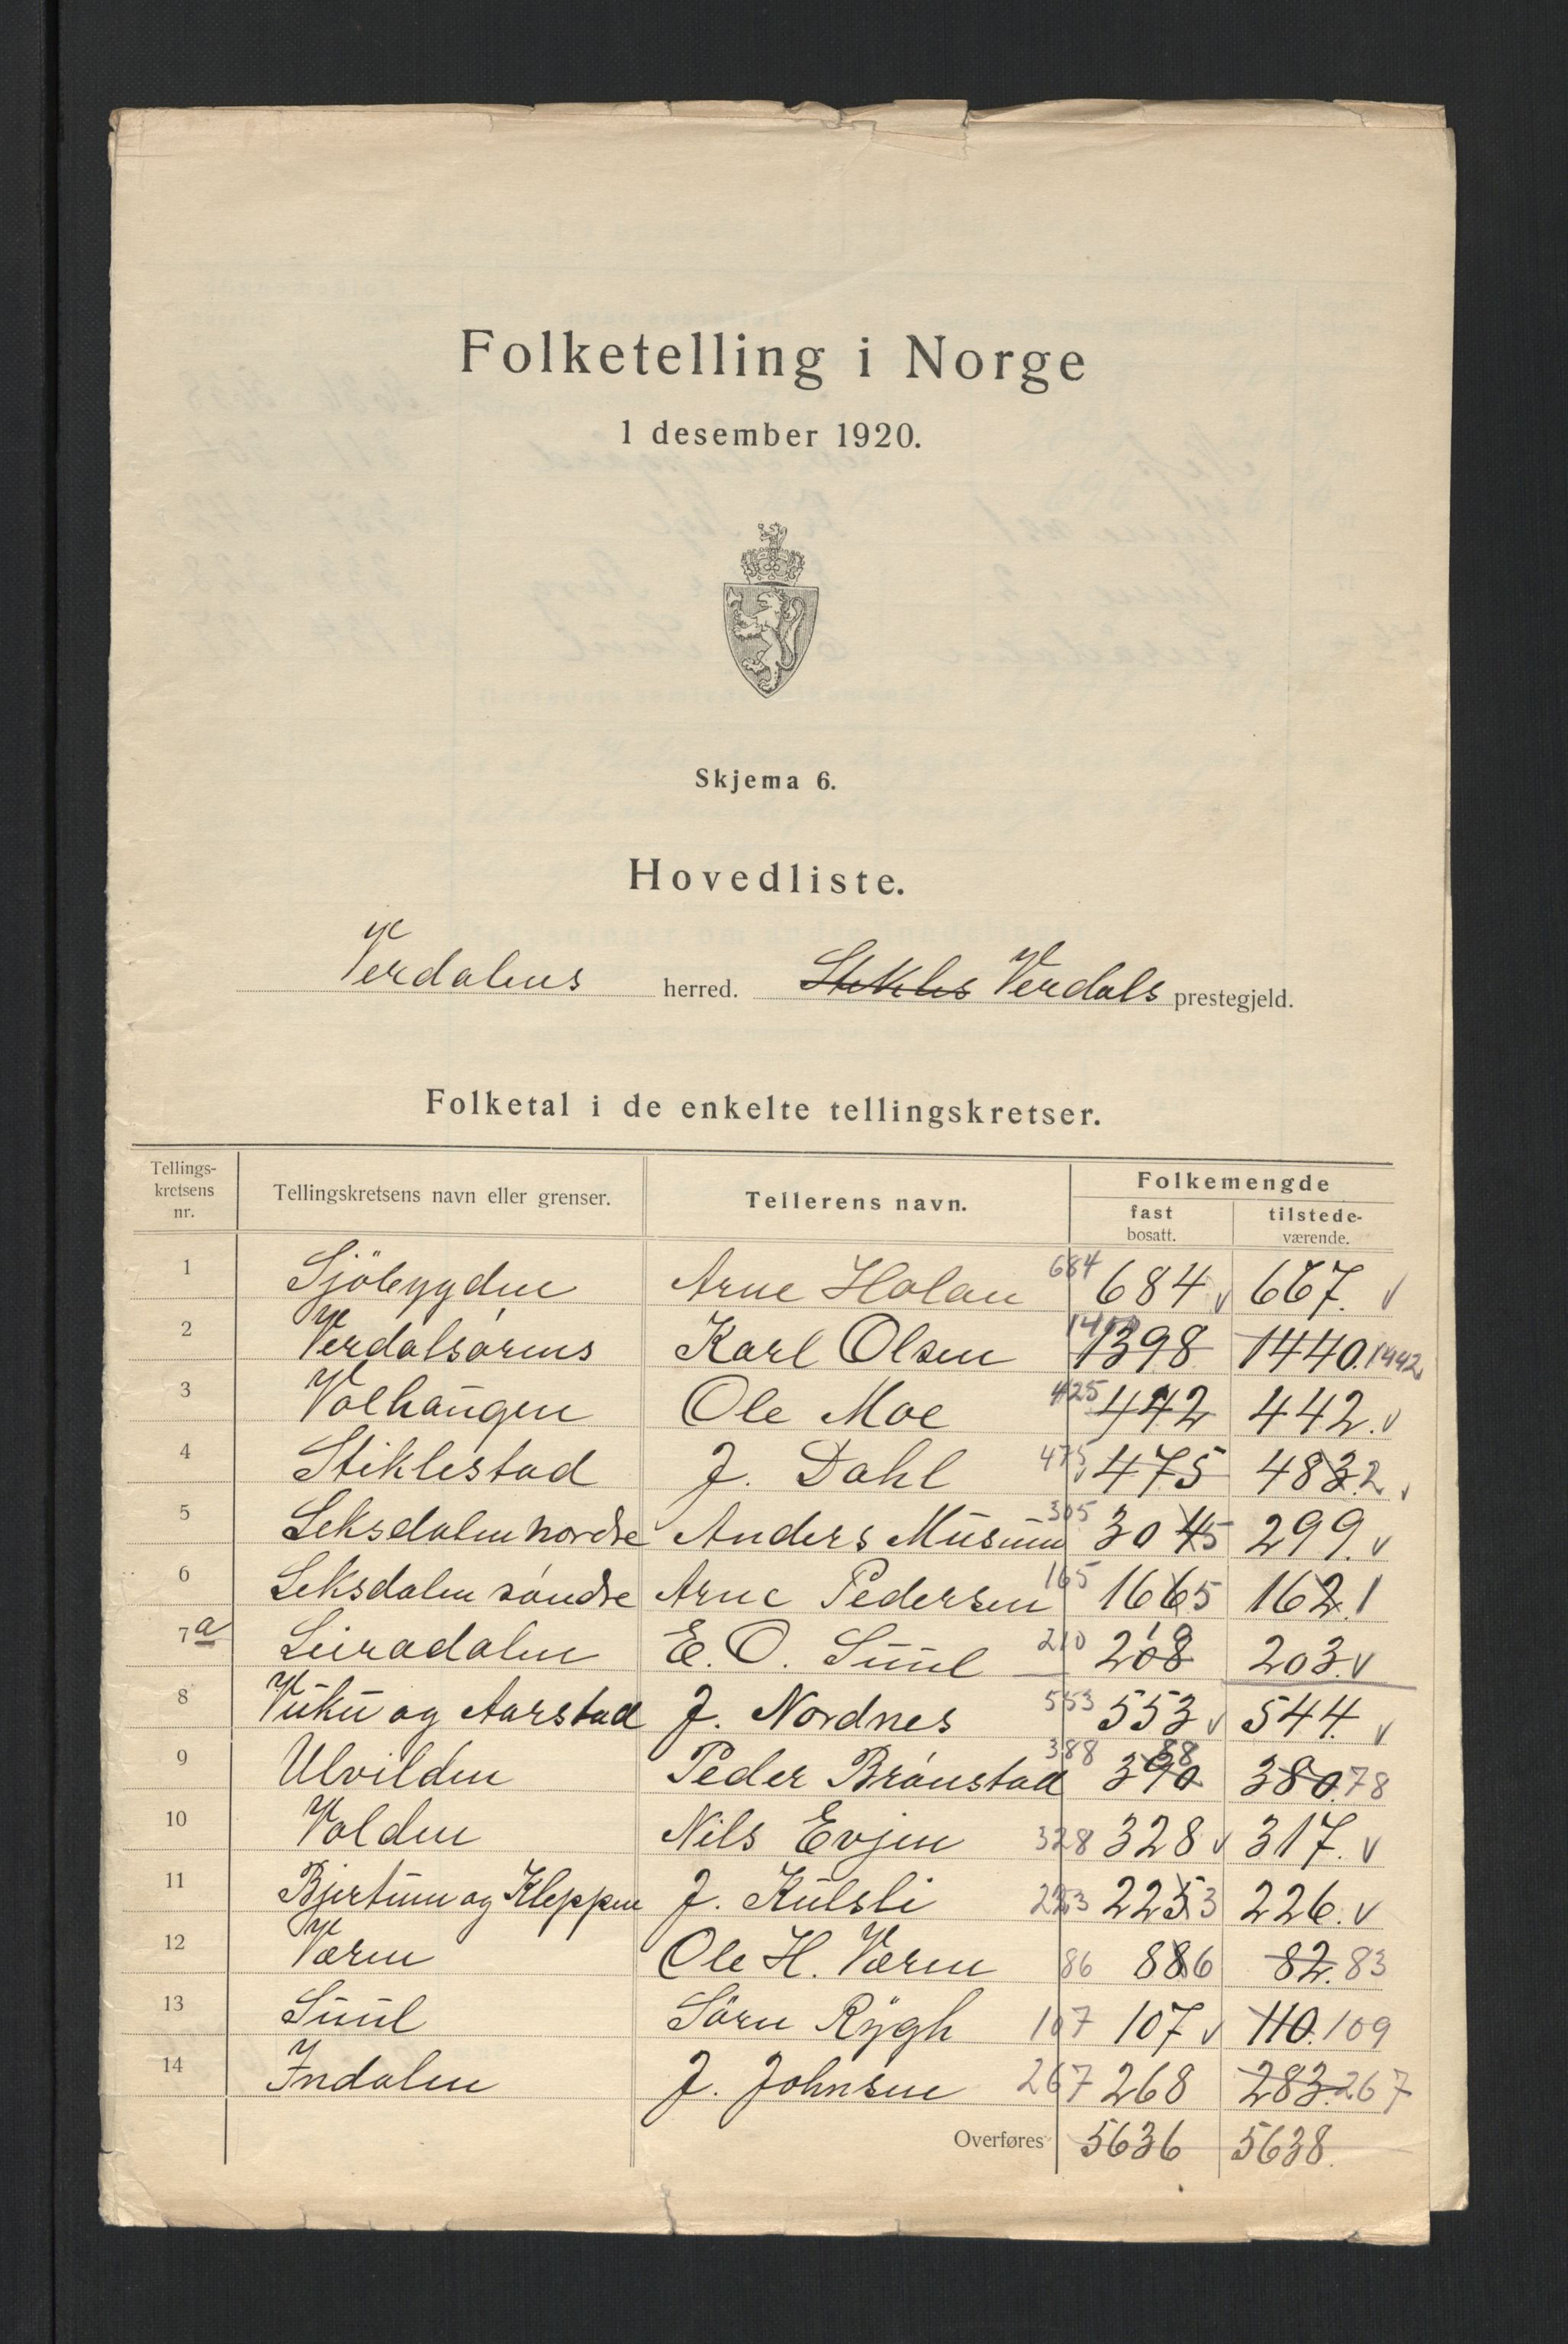 Folketelling i Norge
1 desember 1920.
Skjema 6.
Hovedliste.
Verdalens herred. Stikles Verdals prestegjeld.
Folketal i de enkelte tellingskretser.
Tellings-kretsens nr. Tellingskretsens navn eller grenser. Tellerens navn. Folkemengde
fast bosatt. tilstede-værende.
1 Sjöbygden Arne Holan 684 684 v 667. v
2 Verdalsørens Karl Olsen 1398 1440. 1442
3 Volhaugen Ole Moe 425 442 442. v
4 Stiklestad J. Dahl 475 v 475 483. 2
5 Leksdalen nordre Anders Musum 305 304 5 299. v
6 Leksdalen søndre Arne Pedersen 165 166 5 162. 1
7 a Leiradalen E. O. Suul 210 208 10 203. v
8 Vuku og Aarstad J. Nordnes 553 553 v 544. v
9 Ulvilden Peder Brønstad 388 390 88 380. 78
10 Volden Nils Evjen 328 328 v 317. v
11 Bjertnes og Kleppen J. Kulsli 223 225 3 226. v
12 Væren Ole H. Væren 86 88 6 82. 83
13 Suul Søren Rygh 107 107 v 110. 109
14 Indalen J. Johnsen 267 268 283. 267
Overføres 5636 5638.